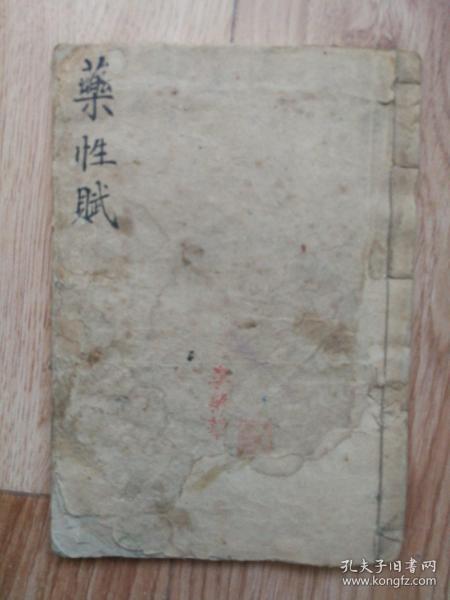 藥性賦
孔夫子旧书网
www.kongfz.com